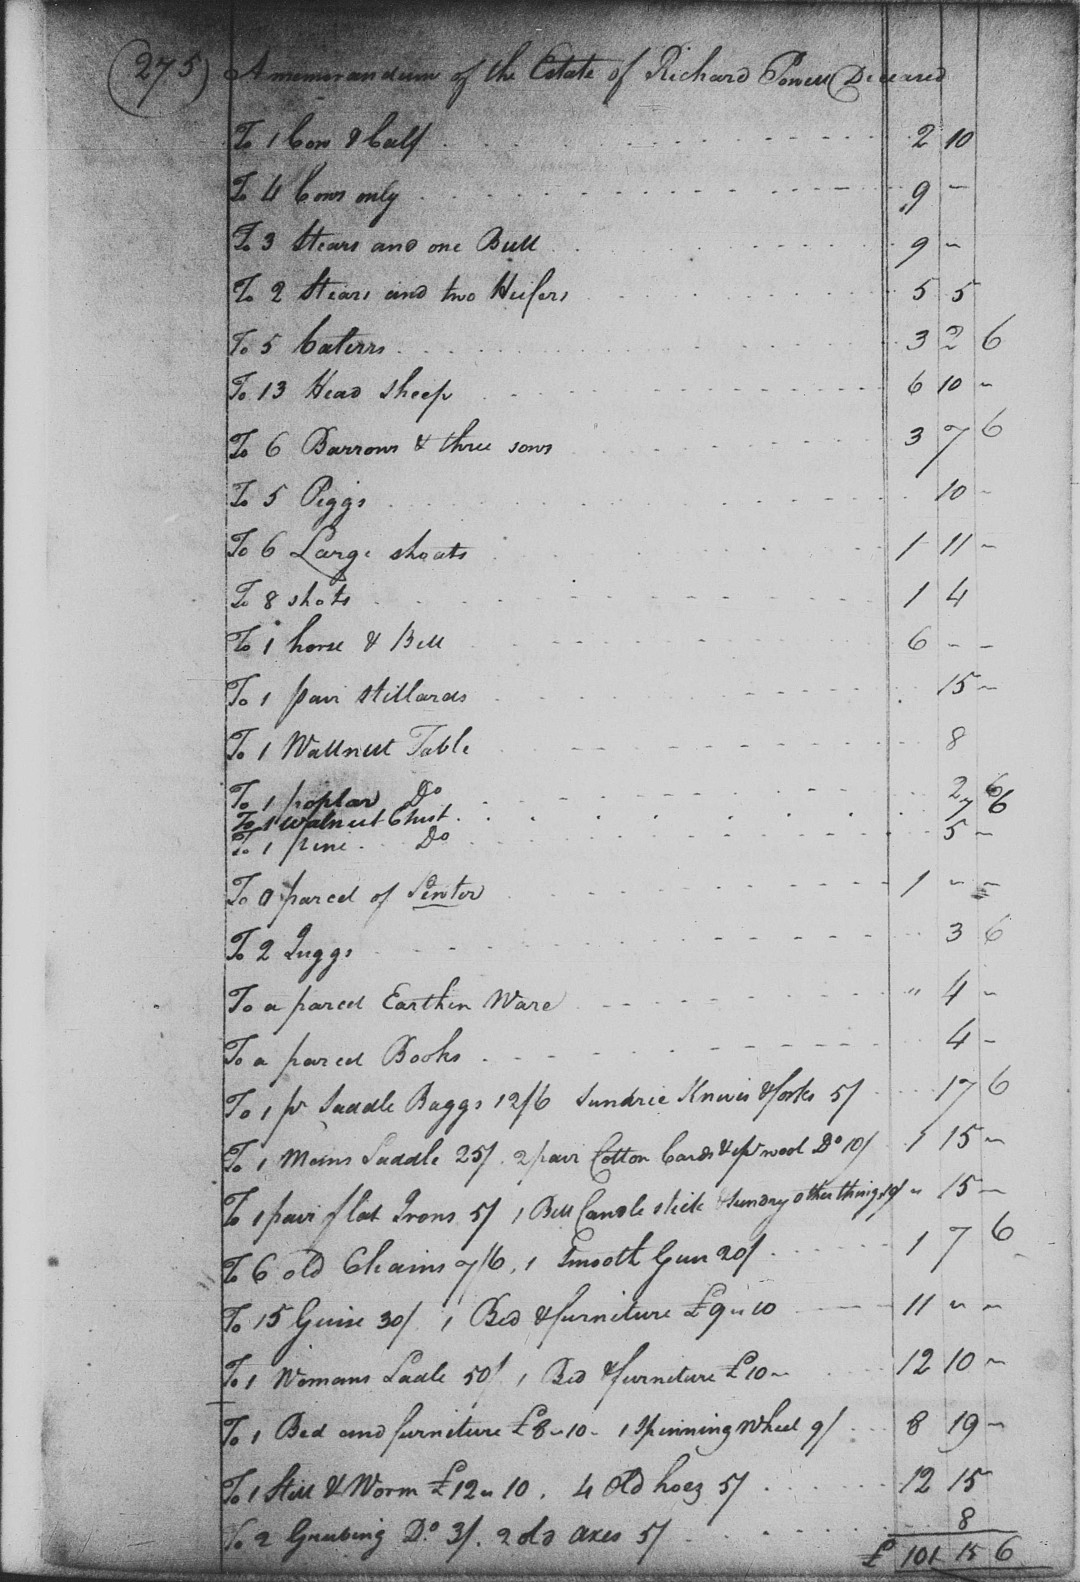 (275) A memorandum of the Estate of Richard Powell Deceased
To 1 Cow & Calf 2 10
To 4 Cows only 9 -
To 3 Stears and one Bull 9 -
To 2 Stears and two Heifers 5 5
To 5 Calerrs 3 2 6
To 13 Head sheep 6 10 -
To 6 Barrows & three sows 3 7 6
To 5 Piggs 10 -
To 6 Large shoats 1 11 -
To 8 shots 1 4
To 1 horse & Bell 6 - -
To 1 pair stillards 15 -
To 1 Wallnutt Table 8
To 1 poplar Do 2 6
To 1 Walnut Chest 7 6
To 1 pine Do 5 -
To a parcel of Penter 1 - -
To 2 Juggs 3 6
To a parcel Earthen Ware " 4 -
To a parcel Books 4 -
To 1 pr Saddle Baggs 12/6 Sundrie Knives & forks 5/ 17 6
To 1 Mans Saddle 25/. 2 pair Cotton Cards & 1 pr wool Do 10/ 1 15 -
To 1 pair flat Irons 5/ 1 Bell Candle stick & sundry other things 10/ " 15 -
To 6 old Chairns 7/6, 1 Smooth Gun 20/ 1 7 6
To 15 Geese 30/ 1 Bed & furniture £9 " 10 11 - -
To 1 Womans Sadle 50/ 1 Bed & furniture £10 - 12 10 -
To 1 Bed and furniture £8 - 10 - 1 Spinning Wheel 9/ 8 19 -
To 1 Still & Worm £12 " 10. 4 Old hoes 5/ 12 15
To 2 Grubing Do 3/. 2 old axes 5/ 8
£ 101 15 6